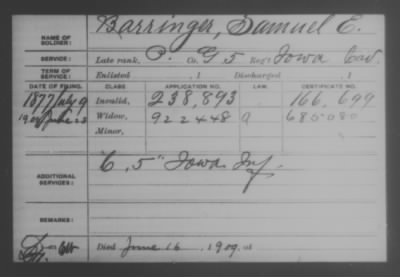 NAME OF SOLDIER: Barringer, Samuel E.
SERVICE: Late rank, P. Co. G 5 Reg't Iowa Cav.
TERM OF SERVICE: Enlisted , 1 Discharged , 1
DATE OF FILING. CLASS. APPLICATION NO. LAW. CERTIFICATE NO.
1877 July 9 Invalid, 238,893 166,699
1909 Widow, 922448 680080
Minor,
ADDITIONAL SERVICES: "C, 5" Iowa Inf.
REMARKS:
Died June 16, 1909, at